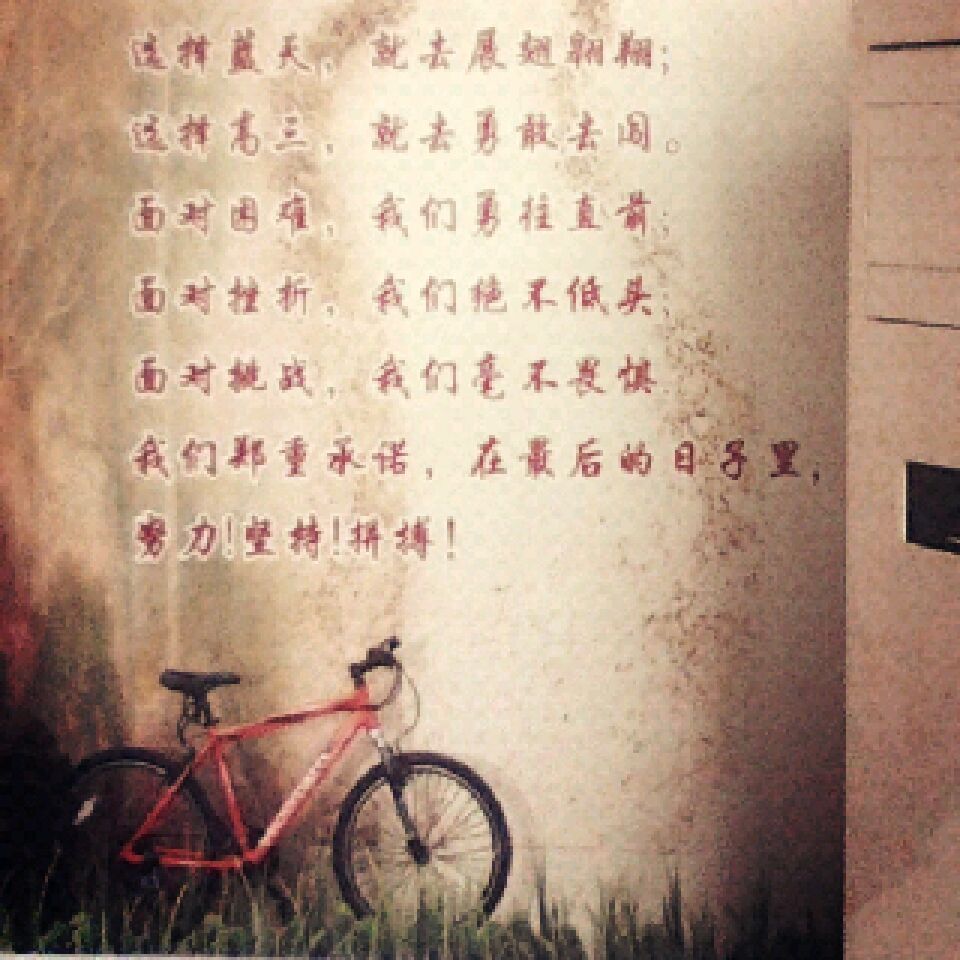 选择蓝天，就去展翅翱翔；
选择高三，就去勇敢去闯。
面对困难，我们勇往直前；
面对挫折，我们绝不低头；
面对挑战，我们毫不畏惧
我们郑重承诺，在最后的日子里，
努力！坚持！拼搏！